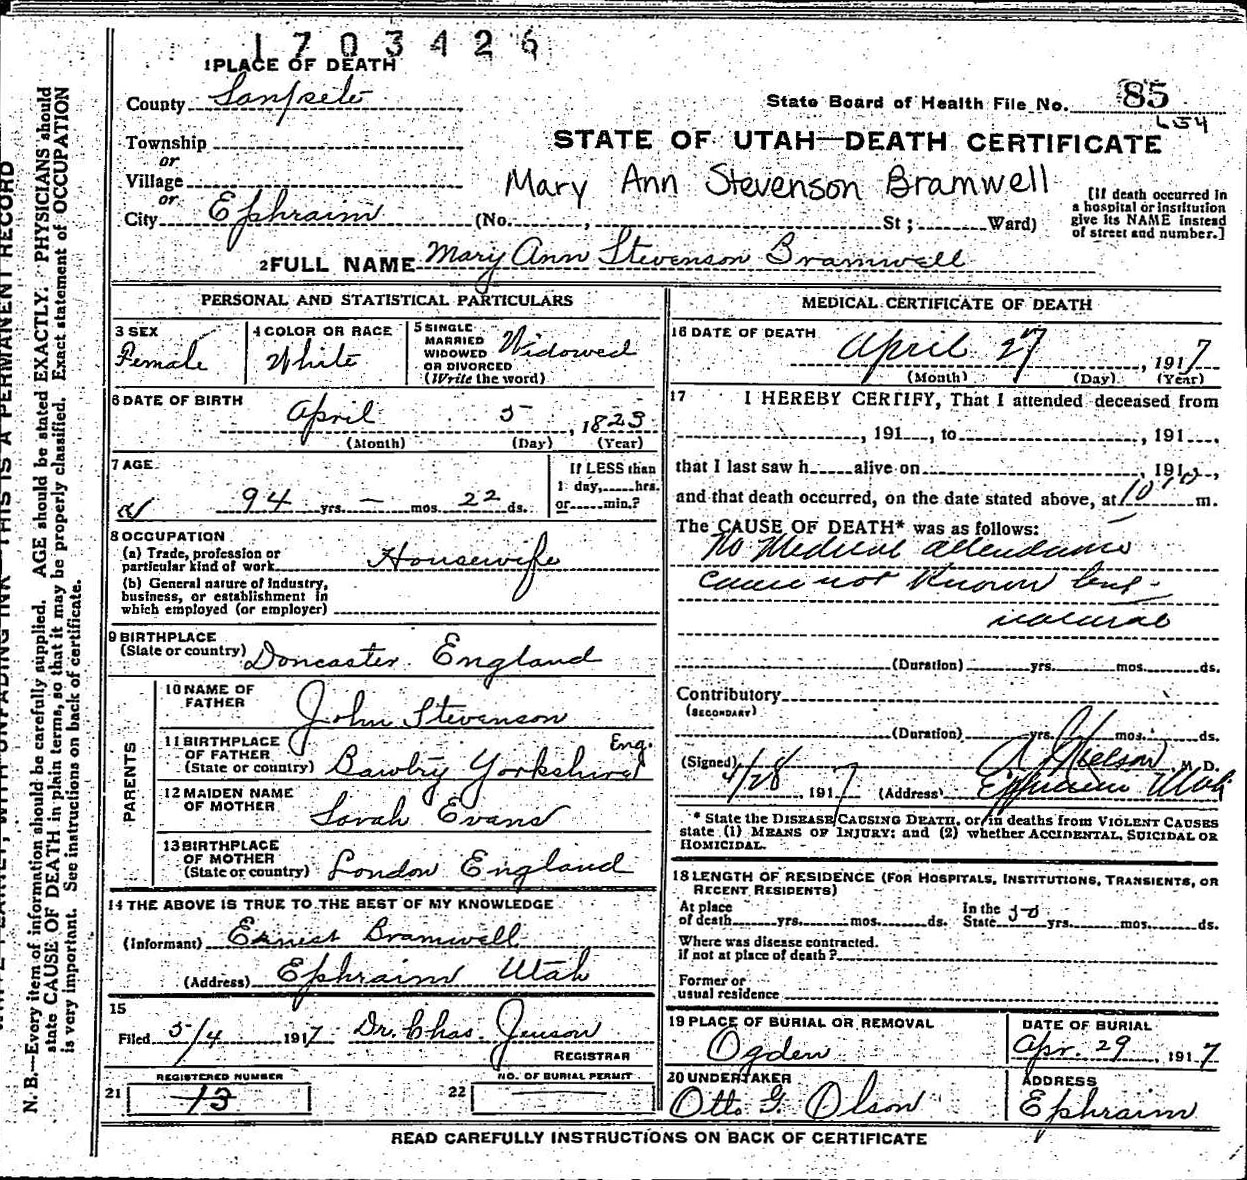 1703426
1 PLACE OF DEATH
County Sanpete
State Board of Health File No. 85
654
Township
or
Village
or
City Ephraim
STATE OF UTAH—DEATH CERTIFICATE
Mary Ann Stevenson Bramwell
(No. , St ; Ward)
[If death occurred in
a hospital or institution
give its NAME instead
of street and number.]
2 FULL NAME Mary Ann Stevenson Bramwell
PERSONAL AND STATISTICAL PARTICULARS
3 SEX
Female
4 COLOR OR RACE
White
5 SINGLE
MARRIED
WIDOWED
OR DIVORCED
(Write the word)
Widowed
6 DATE OF BIRTH
April 5, 1823
(Month) (Day) (Year)
7 AGE
94 yrs. — mos. 22 ds.
If LESS than
1 day, hrs.
or min.?
8 OCCUPATION
(a) Trade, profession or
particular kind of work Housewife
(b) General nature of industry,
business, or establishment in
which employed (or employer)
9 BIRTHPLACE
(State or country) Doncaster England
PARENTS
10 NAME OF
FATHER John Stevenson
11 BIRTHPLACE
OF FATHER
(State or country) Bawtry Yorkshire Eng.
12 MAIDEN NAME
OF MOTHER Sarah Evans
13 BIRTHPLACE
OF MOTHER
(State or country) London England
14 THE ABOVE IS TRUE TO THE BEST OF MY KNOWLEDGE
(Informant) Ernest Bramwell
(Address) Ephraim Utah
15
Filed 5/4 1917 Dr. Chas. Jenson
REGISTRAR
REGISTERED NUMBER
21 13
NO. OF BURIAL PERMIT
22
MEDICAL CERTIFICATE OF DEATH
16 DATE OF DEATH April 27, 1917
(Month) (Day) (Year)
17 I HEREBY CERTIFY, That I attended deceased from
, 191 , to , 191 ,
that I last saw h alive on , 191 ,
and that death occurred, on the date stated above, at 10 m.
The CAUSE OF DEATH* was as follows:
No Medical attendance
cause not Known but
natural
(Duration) yrs. mos. ds.
Contributory
(SECONDARY)
(Duration) yrs. mos. ds.
(Signed) A Nielson, M. D.
4/28, 1917 (Address) Ephraim Utah
* State the DISEASE CAUSING DEATH, or, in deaths from VIOLENT CAUSES
state (1) MEANS OF INJURY; and (2) whether ACCIDENTAL, SUICIDAL OR
HOMICIDAL.
18 LENGTH OF RESIDENCE (FOR HOSPITALS, INSTITUTIONS, TRANSIENTS, OR
RECENT RESIDENTS)
At place
of death yrs. mos. ds.
In the
State yrs. mos. ds.
Where was disease contracted.
if not at place of death?
Former or
usual residence
19 PLACE OF BURIAL OR REMOVAL
Ogden
DATE OF BURIAL
Apr. 29, 1917
20 UNDERTAKER
Otto G. Olson
ADDRESS
Ephraim
READ CAREFULLY INSTRUCTIONS ON BACK OF CERTIFICATE
WITH UNFADING INK—THIS IS A PERMANENT RECORD
N. B.—Every item of information should be carefully supplied. AGE should be stated EXACTLY. PHYSICIANS should
state CAUSE OF DEATH in plain terms, so that it may be properly classified. Exact statement of OCCUPATION
is very important. See instructions on back of certificate.